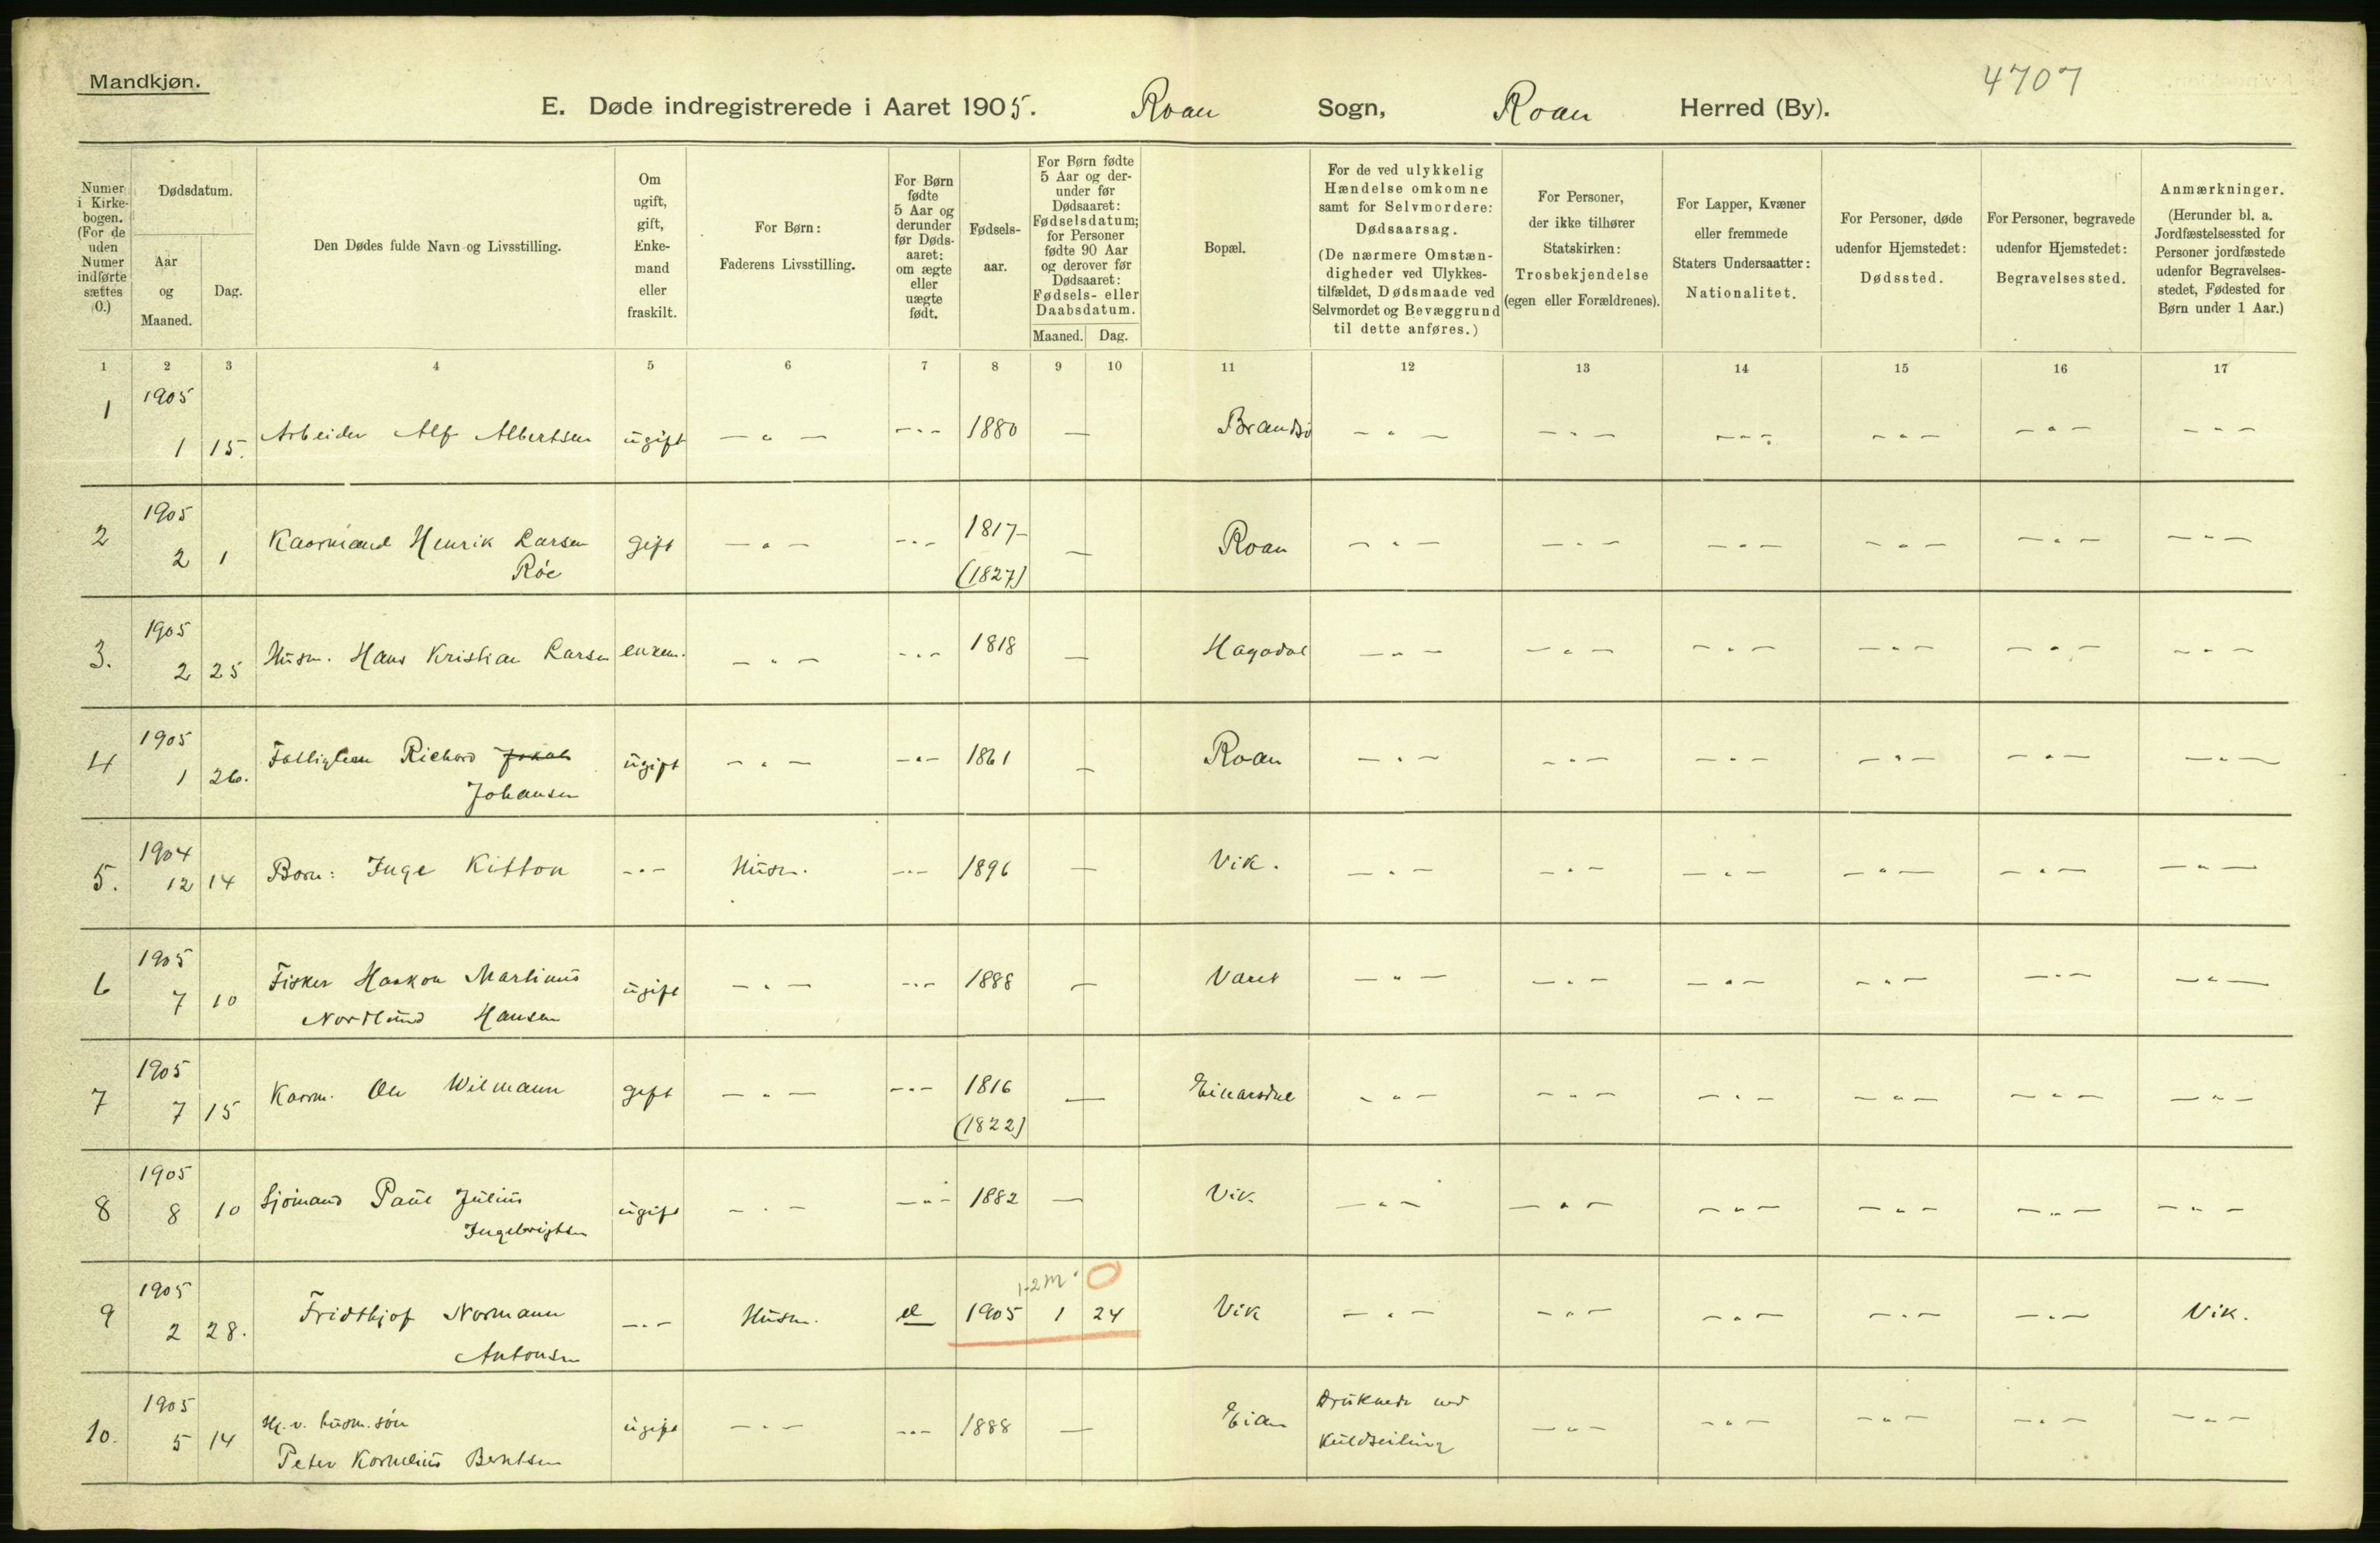 4707
Mandkjøn.
E. Døde indregistrerede i Aaret 1905. Roan Sogn, Roan Herred (By).
Numer i Kirke- bogen. (For de uden Numer indførte sættes 0.)
Dødsdatum.
Aar og Maaned.
Dag.
Den Dødes fulde Navn og Livsstilling.
Om ugift, gift, Enke- mand eller fraskilt.
For Børn: Faderens Livsstilling.
For Børn fødte 5 Aar og derunder før Døds- aaret: om ægte eller uægte født.
Fødsels- aar.
For Børn fødte 5 Aar og der- under før Dødsaaret: Fødselsdatum; for Personer fødte 90 Aar og derover før Dødsaaret: Fødsels- eller Daabsdatum.
Maaned. Dag.
Bopæl.
For de ved ulykkelig Hændelse omkomne samt for Selvmordere: Dødsaarsag. (De nærmere Omstæn- digheder ved Ulykkes- tilfældet, Dødsmaade ved Selvmordet og Bevæggrund til dette anføres.)
For Personer, der ikke tilhører Statskirken: Trosbekjendelse (egen eller Forældrenes).
For Lapper, Kvæner eller fremmede Staters Undersaatter: Nationalitet.
For Personer, døde udenfor Hjemstedet: Dødssted.
For Personer, begravede udenfor Hjemstedet: Begravelsessted.
Anmærkninger. (Herunder bl. a. Jordfæstelsessted for Personer jordfæstede udenfor Begravelses- stedet, Fødested for Børn under 1 Aar.)
1 2 3 4 5 6 7 8 9 10 11 12 13 14 15 16 17
1905
1 1 15. Arbeider Alf Albertsen ugift — " — — " — 1880 — — " — — " — — " — — " — — " — — " —
1905
2 2 1 Kaarmand Henrik Larsen gift — " — — " — 1817 — Roan — " — — " — — " — — " — — " — — " —
Róe (1827)
1905
3. 2 25 Husm. Hans Kristian Larsen enkem. — " — — " — 1818 — Hagadal — " — — " — — " — — " — — " — — " —
1905
4 1 26. Richard ugift — " — — " — 1861 — Roan — " — — " — — " — — " — — " — — " —
Johansen
1904
5. 12 14 Barn: Inge Kitton — " — Husm. — " — 1896 — Vik. — " — — " — — " — — " — — " — — " —
1905
6 7 10 Fisker Haakon Martinus ugift — " — — " — 1888 — — " — — " — — " — — " — — " — — " —
Nordlund Hansen
1905
7 7 15 Kaarm. Ole Wilmann gift — " — — " — 1816 — — " — — " — — " — — " — — " — — " —
(1822)
1905
8 8 10 Sjømand Paul Julius ugift — " — — " — 1882 — Vik — " — — " — — " — — " — — " — — " —
Ingebrigtsen
1-2 m. 0
1905
9 2 28. Fridthjof Normann — " — Husm. 1905 1 24 Vik — " — — " — — " — — " — — " — Vik.
Antonsen
1905
10. 5 14 Hj. v. husm. søn ugift — " — — " — 1888 — Eian Druknede ved — " — — " — — " — — " — — " —
Peter Kornelius Berntsen Kuldseiling